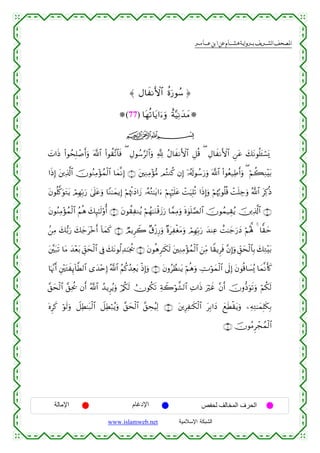 المصحف الشريف برواية هشام عن ابن عامر
﴿ سُورَةُ ٱلْأَنفَالِ ﴾
۞مَدَنِيَّةٌ وَءَايَاتُهَا (77)۞
بِسْمِ ٱللَّهِ ٱلرَّحْمَٰنِ ٱلرَّحِيمِ
يَسْـَٔلُونَكَ عَنِ ٱلْأَنفَالِ ۖ قُلِ ٱلْأَنفَالُ لِلَّهِ وَٱلرَّسُولِ ۖ فَٱتَّقُوا۟ ٱللَّهَ وَأَصْلِحُوا۟ ذَاتَ
بَيْنِكُمْ ۖ وَأَطِيعُوا۟ ٱللَّهَ وَرَسُولَهُۥٓ إِن كُنتُم مُّؤْمِنِينَ ۝ إِنَّمَا ٱلْمُؤْمِنُونَ ٱلَّذِينَ إِذَا
ذُكِرَ ٱللَّهُ وَجِلَتْ قُلُوبُهُمْ وَإِذَا تُلِيَتْ عَلَيْهِمْ ءَايَٰتُهُۥ زَادَتْهُمْ إِيمَٰنًا وَعَلَىٰ رَبِّهِمْ يَتَوَكَّلُونَ
۝ ٱلَّذِينَ يُقِيمُونَ ٱلصَّلَوٰةَ وَمِمَّا رَزَقْنَٰهُمْ يُنفِقُونَ ۝ أُو۟لَٰٓئِكَ هُمُ ٱلْمُؤْمِنُونَ
حَقًّا ۚ لَّهُمْ دَرَجَٰتٌ عِندَ رَبِّهِمْ وَمَغْفِرَةٌ وَرِزْقٌ كَرِيمٌ ۝ كَمَآ أَخْرَجَكَ رَبُّكَ مِنۢ
بَيْتِكَ بِٱلْحَقِّ وَإِنَّ فَرِيقًا مِّنَ ٱلْمُؤْمِنِينَ لَكَٰرِهُونَ ۝ يُجَٰدِلُونَكَ فِى ٱلْحَقِّ بَعْدَ مَا تَبَيَّنَ
كَأَنَّمَا يُسَاقُونَ إِلَى ٱلْمَوْتِ وَهُمْ يَنظُرُونَ ۝ وَإِذْ يَعِدُكُمُ ٱللَّهُ إِحْدَى ٱلطَّآئِفَتَيْنِ أَنَّهَا
لَكُمْ وَتَوَدُّونَ أَنَّ غَيْرَ ذَاتِ ٱلشَّوْكَةِ تَكُونُ لَكُمْ وَيُرِيدُ ٱللَّهُ أَن يُحِقَّ ٱلْحَقَّ
بِكَلِمَٰتِهِۦ وَيَقْطَعَ دَابِرَ ٱلْكَٰفِرِينَ ۝ لِيُحِقَّ ٱلْحَقَّ وَيُبْطِلَ ٱلْبَٰطِلَ وَلَوْ كَرِهَ
ٱلْمُجْرِمُونَ ۝
الحرف المخالف لحفص
الإدغام
الإمالة
الشبكة الإسلامية www.islamweb.net